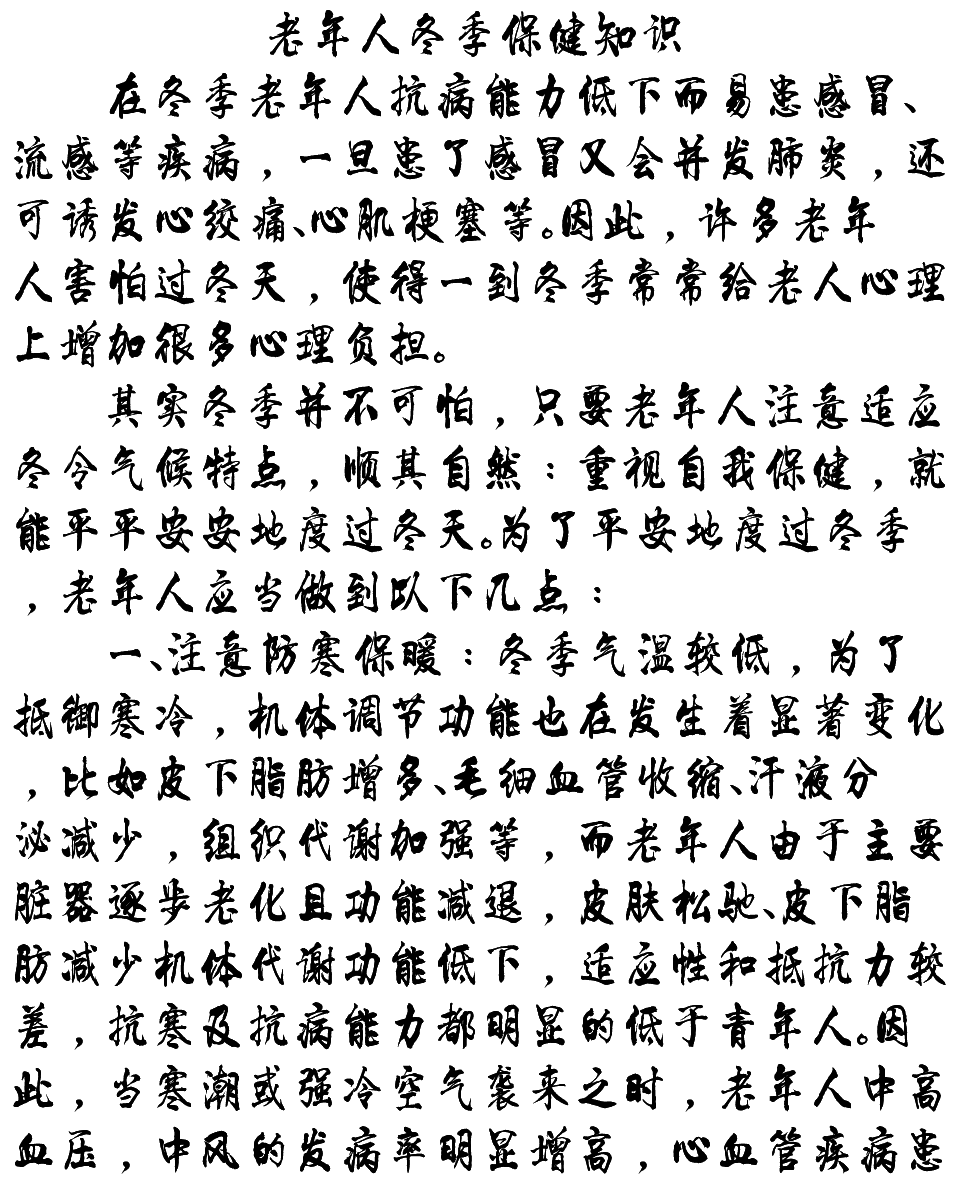 老年人冬季保健知识
在冬季老年人抗病能力低下而易患感冒、
流感等疾病，一旦患了感冒又会并发肺炎，还
可诱发心绞痛、心肌梗塞等。因此，许多老年
人害怕过冬天，使得一到冬季常常给老人心理
上增加很多心理负担。
其实冬季并不可怕，只要老年人注意适应
冬令气候特点，顺其自然：重视自我保健，就
能平平安安地度过冬天。为了平安地度过冬季
，老年人应当做到以下几点：
一、注意防寒保暖：冬季气温较低，为了
抵御寒冷，机体调节功能也在发生着显著变化
，比如皮下脂肪增多、毛细血管收缩、汗液分
泌减少，组织代谢加强等，而老年人由于主要
脏器逐步老化且功能减退，皮肤松驰、皮下脂
肪减少机体代谢功能低下，适应性和抵抗力较
差，抗寒及抗病能力都明显的低于青年人。因
此，当寒潮或强冷空气袭来之时，老年人中高
血压，中风的发病率明显增高，心血管疾病患